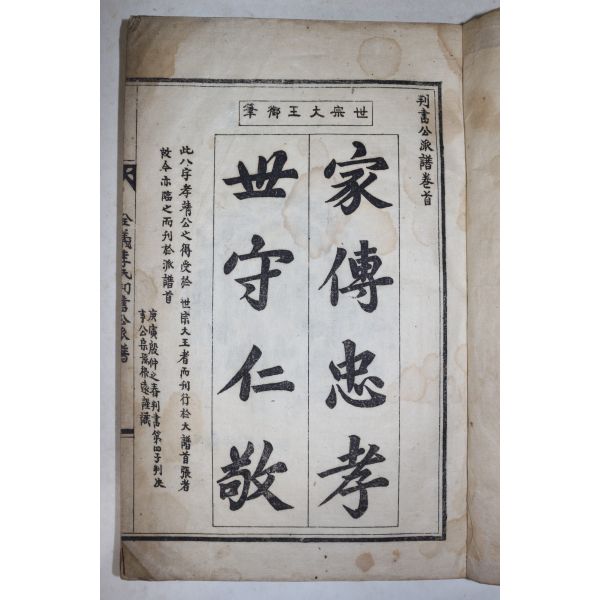 判書公派譜卷首
筆御王大宗世
家傳忠孝
世守仁敬
此八字孝靖公之得受於 世宗大王者而刊行於大譜首張者
故今亦臨之而刊於派譜首
庚寅殷仲之春判書第四子判決
事公宗孫根遠謹識
全義李氏判書公派譜